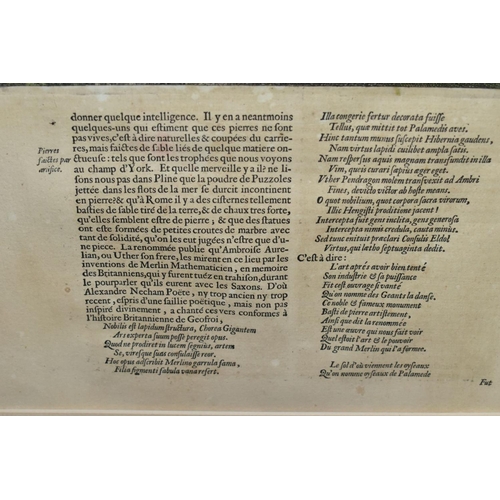 donner quelque intelligence. Il y en a neantmoins
quelques-uns qui estiment que ces pierres ne sont
pas vives, c'est à dire naturelles & coupées du carrie-
res, mais faictes de sable liés de quelque matiere on-
Pierres
faictes par
artifice.
ctueuse : tels que sont les trophées que nous voyons
au champ d'York. Et quelle merveille y a il? ne li-
sons nous pas dans Pline que la poudre de Puzzoles
jettée dans les flots de la mer se durcit incontinent
en pierre? & qu'à Rome il y a des cisternes tellement
basties de sable tiré de la terre, & de chaux tres forte,
qu'elles semblent estre de pierre ; & que des statues
ont este formées de petites croutes de marbre avec
tant de solidité, qu'on les eut jugées n'estre que d'u-
ne piece. La renommée publie qu'Ambroise Aure-
lian, ou Uther son frere, les mirent en ce lieu par les
inventions de Merlin Mathematicien, en memoire
des Britanniens, qui y furent tuéz en trahison, durant
le pourparler qu'ils eurent avec les Saxons. D'où
Alexandre Necham Poëte, ny trop ancien ny trop
recent, espris d'une saillie poëtique, mais non pas
inspiré divinement, a chanté ces vers conformes à
l'histoire Britannienne de Geofroi,
Nobilis est lapidum structura, Chorea Gigantum
Ars experta suum posse peregit opus.
Quod ne prodiret in lucem segnius, artem
Se, viresque suas consuluisse reor.
Hoc opus adscribit Merlino garrula fama,
Filia figmenti fabula vana refert.
Illa congerie fertur decorata fuisse
Tellus, quæ mittit tot Palamedis aves.
Hinc tantum munus suscepit Hibernia gaudens,
Nam virtus lapidi cuilibet ampla satis.
Nam respersus aquis magnam transfundit in illa
Vim, queis curari sæpius æger eget.
Vther Pendragon molem transvexit ad Ambri
Fines, devicto victor ab hoste means.
O quot nobilium, quot corpora sacra virorum,
Illic Hengisti proditione jacent!
Intercepta fuit gens inclita, gens generosa
Intercepta nimis credula, cauta minus.
Sed tunc enituit præclari Consulis Eldol
Virtus, qui letho septuaginta dedit.
C'est à dire :
L'art aprés avoir bien tenté
Son industrie & sa puissance
Fit cest ouvrage si vanté
Qu'on nomme des Geants la danse.
Ce noble & fameux monument
Basti de pierre artistement,
Ainsi que dit la renommée
Est une œuvre qui nous fait voir
Quel estoit l'art & le pouvoir
Du grand Merlin qui l'a formée.
Le sol d'où viennent les oyseaux
Qu'on nomme oyseaux de Palamede
Fut